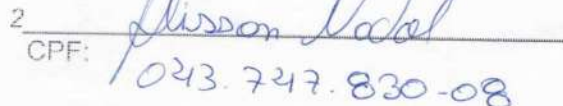 2 Alisson Nadal
CPF: 043.747.830-08